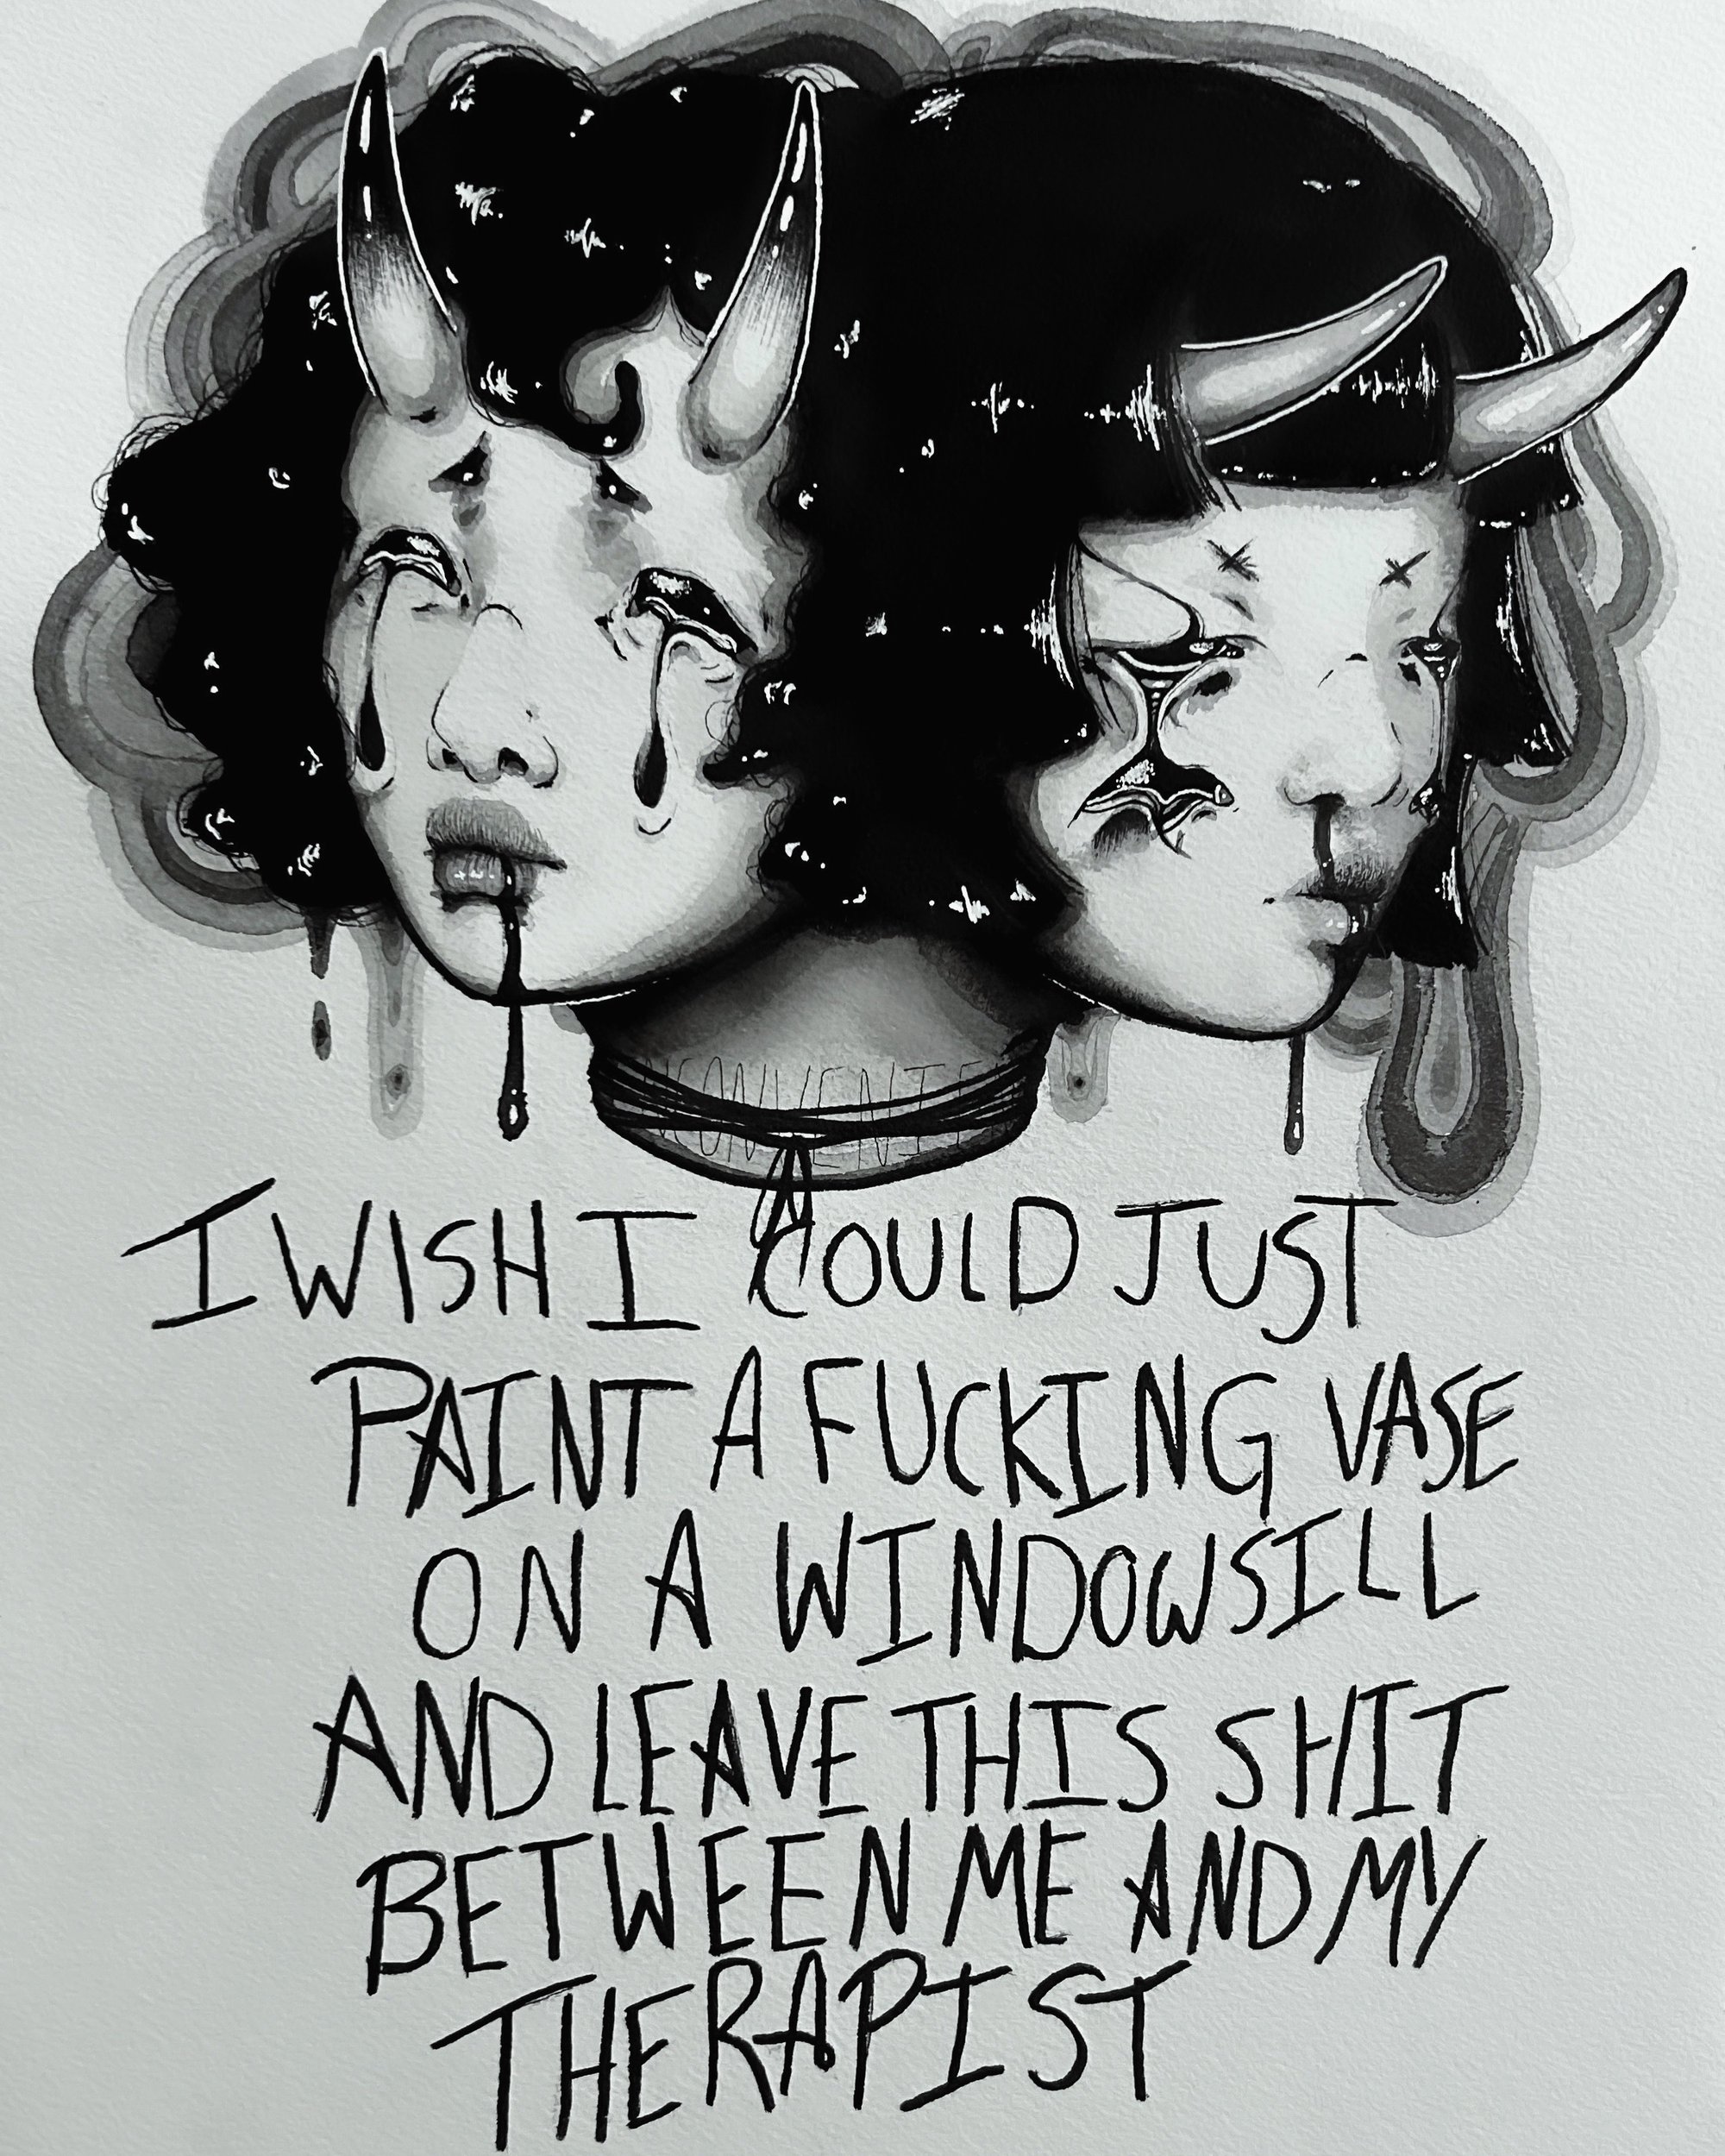 I WISH I COULD JUST
PAINT A FUCKING VASE
ON A WINDOWSILL
AND LEAVE THIS SHIT
BETWEEN ME AND MY
THERAPIST